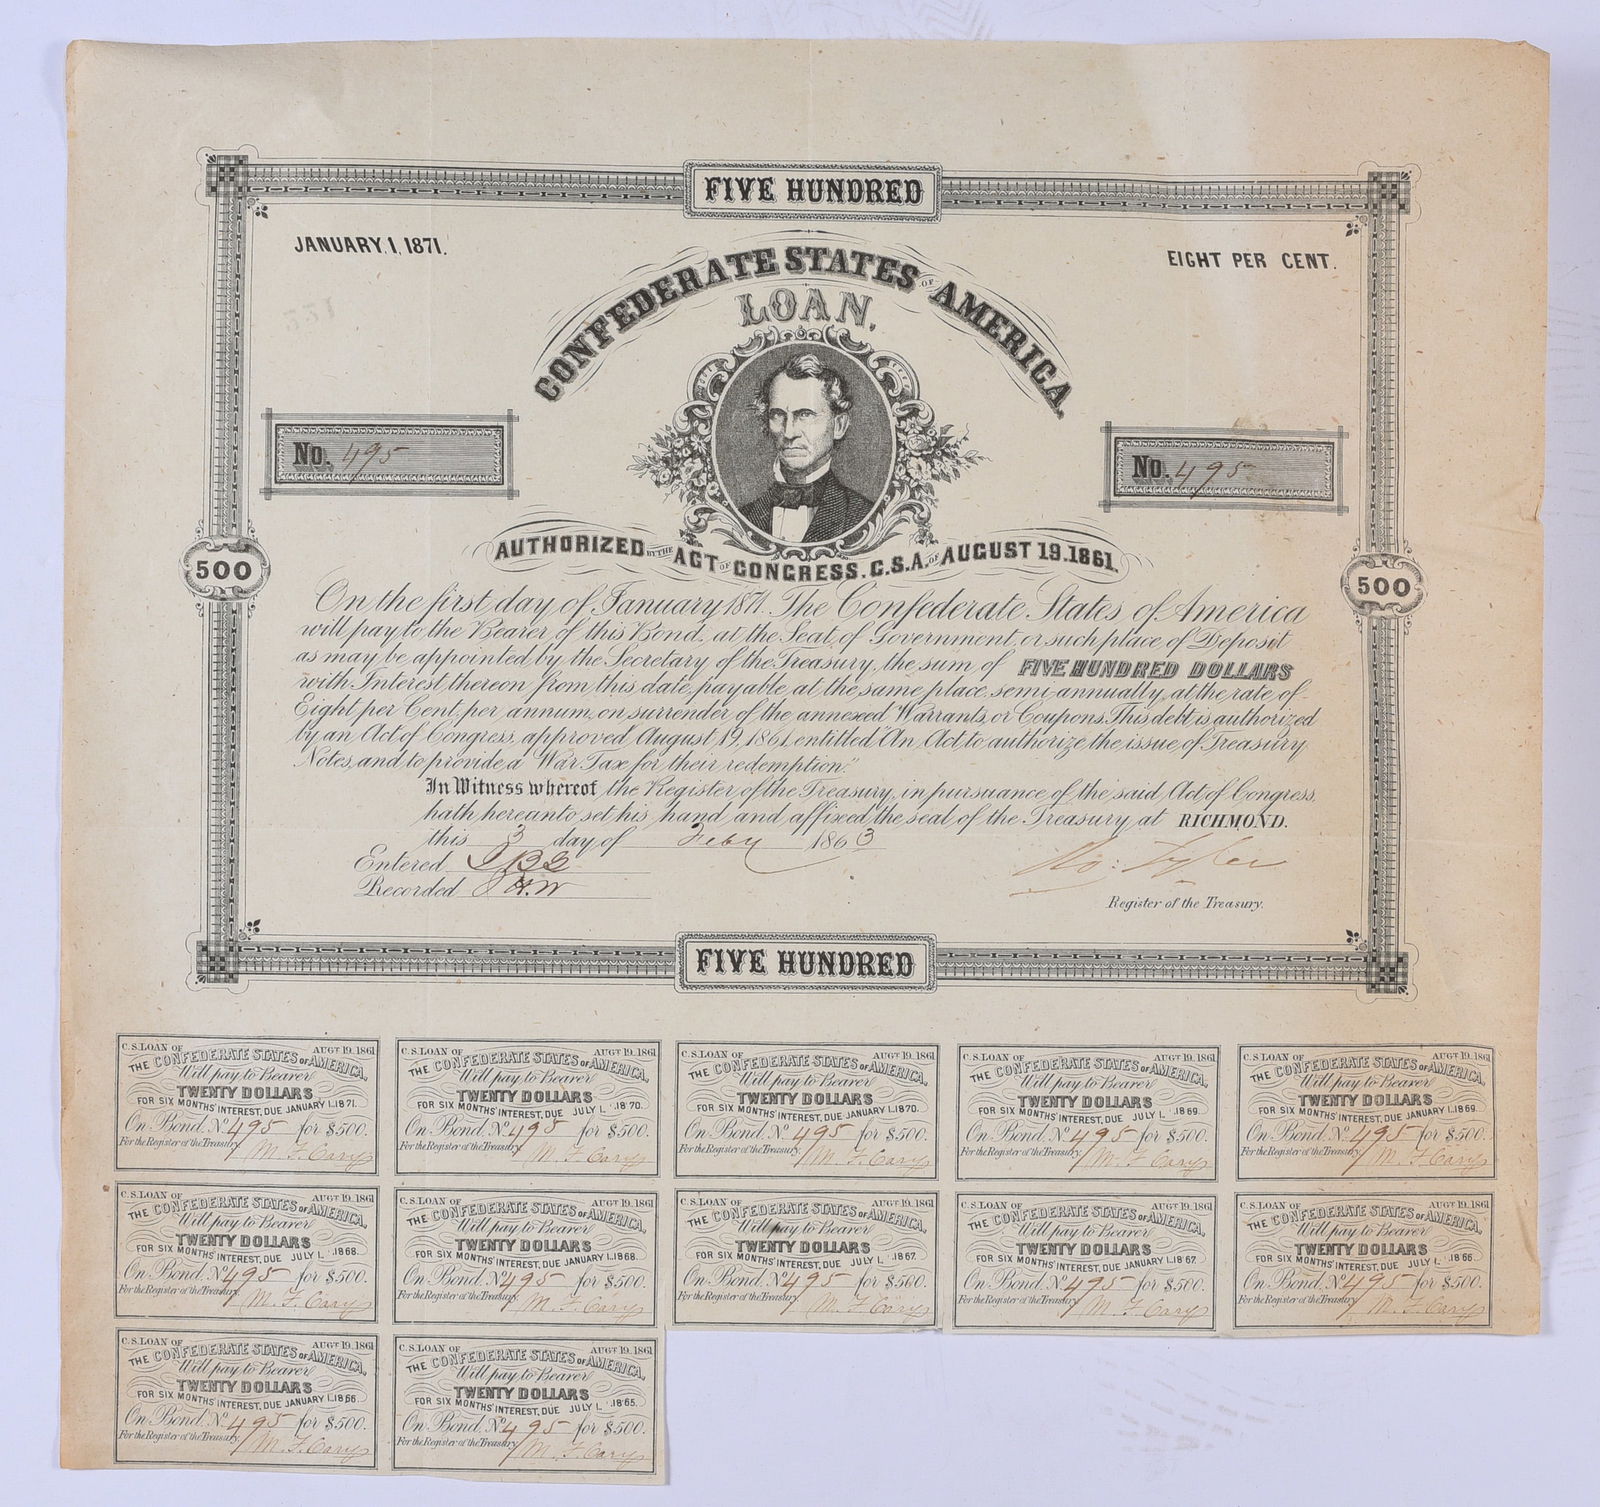 FIVE HUNDRED
JANUARY. 1. 1871.
EIGHT PER CENT.
CONFEDERATE STATES OF AMERICA.
LOAN,
No. 495
No. 495
AUTHORIZED BY THE ACT OF CONGRESS. C.S.A. OF AUGUST 19. 1861.
500
500
On the first day of January 1871. The Confederate States of America
will pay to the Bearer of this Bond, at the Seat of Government, or such place of Deposit
as may be appointed by the Secretary of the Treasury, the sum of FIVE HUNDRED DOLLARS
with Interest thereon from this date, payable at the same place, semi-annually, at the rate of
Eight per Cent. per annum, on surrender of the annexed Warrants, or Coupons. This debt is authorized
by an Act of Congress, approved August 19, 1861, entitled "An Act to authorize the issue of Treasury
Notes, and to provide a War Tax for their redemption."
In Witness whereof, the Register of the Treasury, in pursuance of the said Act of Congress,
hath hereunto set his hand and affixed the seal of the Treasury at RICHMOND.
this 3 day of Feby 1863
Entered
Recorded
Ro: Tyler
Register of the Treasury.
FIVE HUNDRED
C. S. LOAN OF AUGT 19. 1861
THE CONFEDERATE STATES OF AMERICA,
Will pay to Bearer
TWENTY DOLLARS
FOR SIX MONTHS' INTEREST, DUE JANUARY 1. 1871.
On Bond. No 495 for $500.
For the Register of the Treasury. M. F. Cary
C. S. LOAN OF AUGT 19. 1861
THE CONFEDERATE STATES OF AMERICA,
Will pay to Bearer
TWENTY DOLLARS
FOR SIX MONTHS' INTEREST, DUE JULY 1. 1870.
On Bond. No 495 for $500.
For the Register of the Treasury. M. F. Cary
C. S. LOAN OF AUGT 19. 1861
THE CONFEDERATE STATES OF AMERICA,
Will pay to Bearer
TWENTY DOLLARS
FOR SIX MONTHS' INTEREST, DUE JANUARY 1. 1870.
On Bond. No 495 for $500.
For the Register of the Treasury. M. F. Cary
C. S. LOAN OF AUGT 19. 1861
THE CONFEDERATE STATES OF AMERICA,
Will pay to Bearer
TWENTY DOLLARS
FOR SIX MONTHS' INTEREST, DUE JULY 1. 1869.
On Bond. No 495 for $500.
For the Register of the Treasury. M. F. Cary
C. S. LOAN OF AUGT 19. 1861
THE CONFEDERATE STATES OF AMERICA,
Will pay to Bearer
TWENTY DOLLARS
FOR SIX MONTHS' INTEREST, DUE JANUARY 1. 1869.
On Bond. No 495 for $500.
For the Register of the Treasury. M. F. Cary
C. S. LOAN OF AUGT 19. 1861
THE CONFEDERATE STATES OF AMERICA,
Will pay to Bearer
TWENTY DOLLARS
FOR SIX MONTHS' INTEREST, DUE JULY 1. 1868.
On Bond. No 495 for $500.
For the Register of the Treasury. M. F. Cary
C. S. LOAN OF AUGT 19. 1861
THE CONFEDERATE STATES OF AMERICA,
Will pay to Bearer
TWENTY DOLLARS
FOR SIX MONTHS' INTEREST, DUE JANUARY 1. 1868.
On Bond. No 495 for $500.
For the Register of the Treasury. M. F. Cary
C. S. LOAN OF AUGT 19. 1861
THE CONFEDERATE STATES OF AMERICA,
Will pay to Bearer
TWENTY DOLLARS
FOR SIX MONTHS' INTEREST, DUE JULY 1. 1867.
On Bond. No 495 for $500.
For the Register of the Treasury. M. F. Cary
C. S. LOAN OF AUGT 19. 1861
THE CONFEDERATE STATES OF AMERICA,
Will pay to Bearer
TWENTY DOLLARS
FOR SIX MONTHS' INTEREST, DUE JANUARY 1. 1867.
On Bond. No 495 for $500.
For the Register of the Treasury. M. F. Cary
C. S. LOAN OF AUGT 19. 1861
THE CONFEDERATE STATES OF AMERICA,
Will pay to Bearer
TWENTY DOLLARS
FOR SIX MONTHS' INTEREST, DUE JULY 1. 1866.
On Bond. No 495 for $500.
For the Register of the Treasury. M. F. Cary
C. S. LOAN OF AUGT 19. 1861
THE CONFEDERATE STATES OF AMERICA,
Will pay to Bearer
TWENTY DOLLARS
FOR SIX MONTHS' INTEREST, DUE JANUARY 1. 1866.
On Bond. No 495 for $500.
For the Register of the Treasury. M. F. Cary
C. S. LOAN OF AUGT 19. 1861
THE CONFEDERATE STATES OF AMERICA,
Will pay to Bearer
TWENTY DOLLARS
FOR SIX MONTHS' INTEREST, DUE JULY 1. 1865.
On Bond. No 495 for $500.
For the Register of the Treasury. M. F. Cary